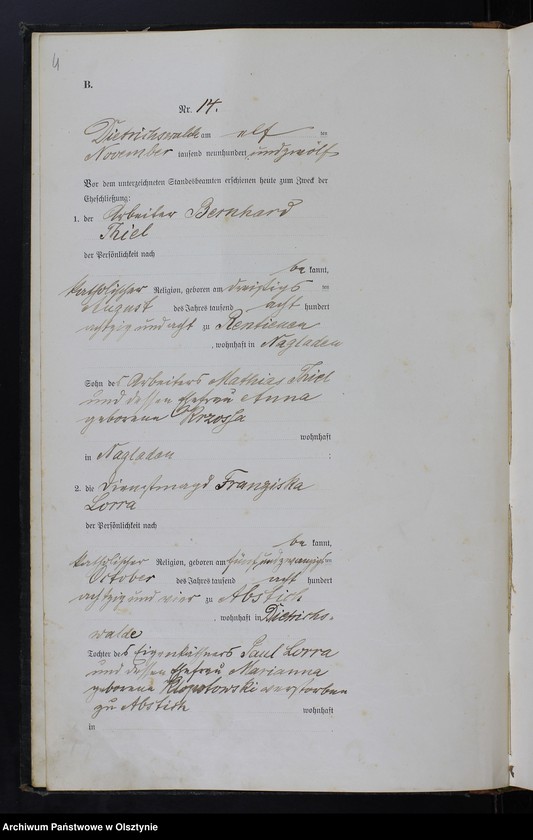 4
B.
Nr. 14.
Dietrichswalde am elf ten
November tausend neunhundert und zwölf
Vor dem unterzeichneten Standesbeamten erschienen heute zum Zweck der
Eheschließung:
1. der Arbeiter Bernhard
Thiel
der Persönlichkeit nach
be kannt,
katholischer Religion, geboren am dreißigs ten
August des Jahres tausend acht hundert
achtzig und acht zu Rentienen
, wohnhaft in Nagladen
Sohn des Arbeiters Mathias Thiel
und dessen Ehefrau Anna
geborene Krzossa
wohnhaft
in Nagladen ;
2. die Dienstmagd Franziska
Lorra
der Persönlichkeit nach
be kannt,
katholischer Religion, geboren am fünfundzwanzigs ten
October des Jahres tausend acht hundert
achtzig und vier zu Abstich
, wohnhaft in Dietrichs-
walde
Tochter des Eigenkätners Paul Lorra
und dessen Ehefrau Marianna
geborene Klopotowski verstorben
zu Abstich wohnhaft
in
Archiwum Państwowe w Olsztynie